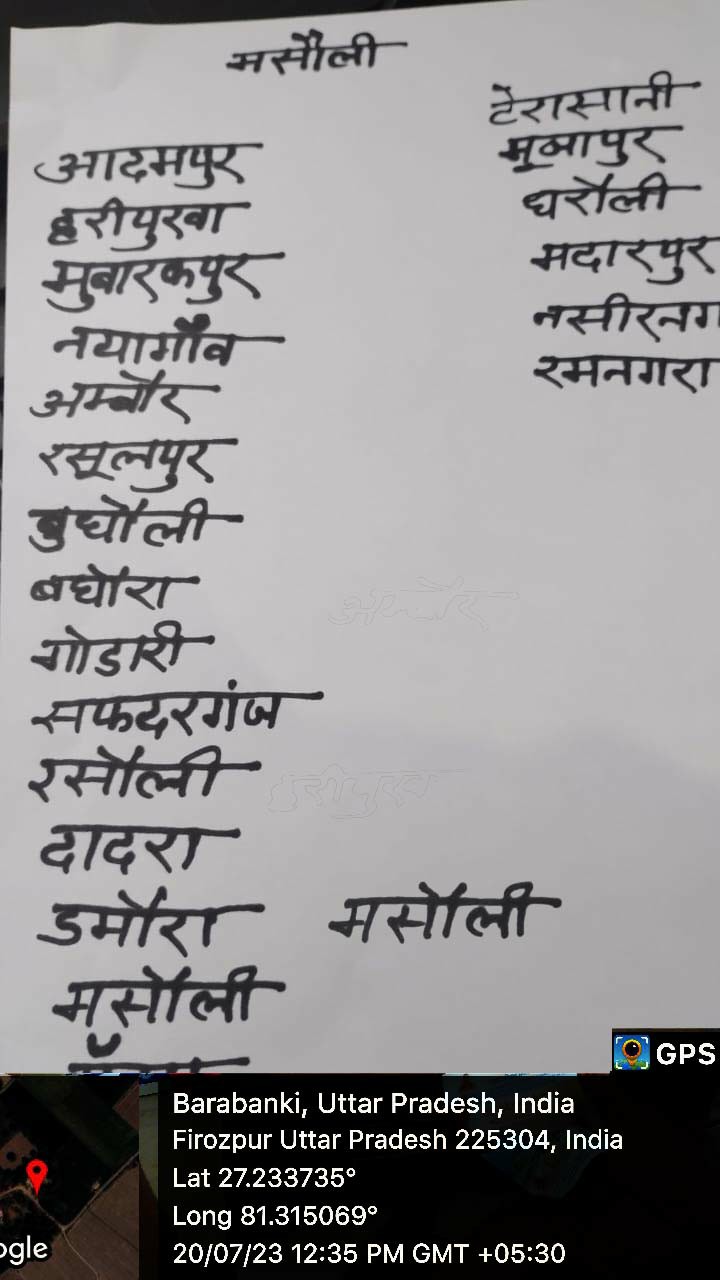 मसौली
आदमपुर
हरीपुरवा
मुबारकपुर
नयागाँव
अम्बौर
रसूलपुर
बुघौली
बघौरा
गोडारी
सफदरगंज
रसौली
दादरा
डमौरा
मसौली
टेरासानी
धरौली
मदारपुर
नसीरनग
रमनगरा
मसौली
अम्बौर
हरीपुरवा
GPS
Barabanki, Uttar Pradesh, India
Firozpur Uttar Pradesh 225304, India
Lat 27.233735°
Long 81.315069°
20/07/23 12:35 PM GMT +05:30
ogle